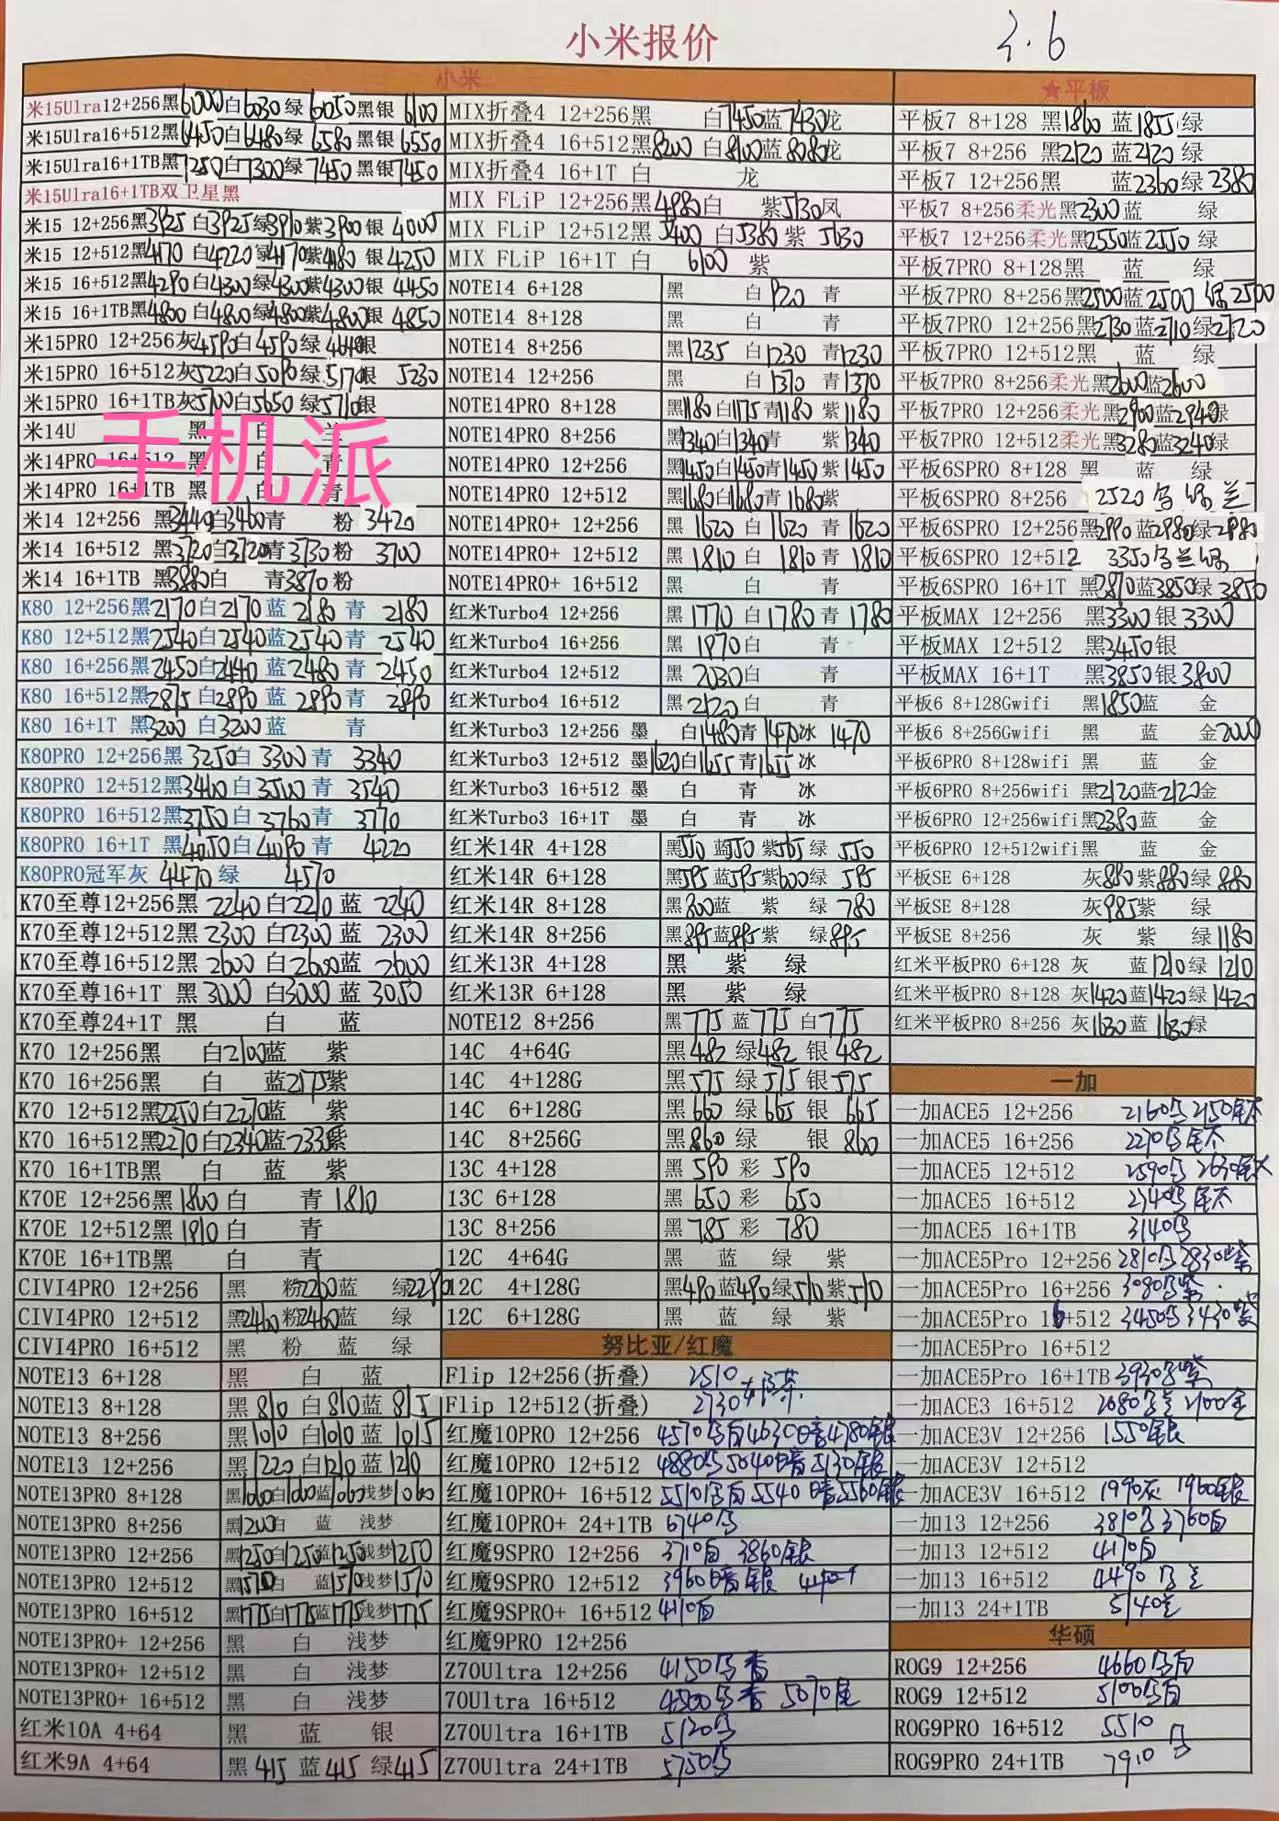 小米报价
3.6
小米
米15Ulra12+256黑6000白6030绿6050黑银6100
米15Ulra16+512黑6450白6480绿6580黑银6550
米15Ulra16+1TB黑7250白7300绿7450黑银7450
米15Ulra16+1TB双卫星黑
米15 12+256黑3925 白3925绿3910紫3900银 4000
米15 12+512黑4170白4220绿4170紫4180 银4250
米15 16+512黑4290白4300绿4300紫4300银 4450
米15 16+1TB黑4800白4800绿4800紫4800银 4850
米15PRO 12+256灰4590白4590绿 4640银
米15PRO 16+512灰5220白5090绿5170银 5230
米15PRO 16+1TB灰5700白5650绿5710银
米14U 黑 白 兰
手机派
米14PRO 16+512 黑 白 青
米14PRO 16+1TB 黑 白 青
米14 12+256 黑3440白3460青 粉 3420
米14 16+512 黑3720白3720青3730粉 3700
米14 16+1TB 黑3880白 青3870粉
K80 12+256黑2170白2170蓝2180青 2180
K80 12+512黑2540白2540蓝2540青 2540
K80 16+256黑2450白2440蓝2480青 2450
K80 16+512黑2875白2890蓝2890青 2890
K80 16+1T 黑3200白3200蓝 青
K80PRO 12+256黑 3250白 3300青 3340
K80PRO 12+512黑3460白3500青 3540
K80PRO 16+512黑3750白3760青 3770
K80PRO 16+1T 黑4050白4090青 4220
K80PRO冠军灰 4470绿 4570
K70至尊12+256黑 2240白2210蓝 2240
K70至尊12+512黑 2300白2300蓝 2300
K70至尊16+512黑 2600白2600蓝 2600
K70至尊16+1T 黑3000白3000蓝3050
K70至尊24+1T 黑 白 蓝
K70 12+256黑 白2100蓝 紫
K70 16+256黑 白 蓝2175紫
K70 12+512黑2250白2270蓝 紫
K70 16+512黑2270白2340蓝2335紫
K70 16+1TB黑 白 蓝 紫
K70E 12+256黑1800白 青1810
K70E 12+512黑1910白 青
K70E 16+1TB黑 白 青
CIVI4PRO 12+256 黑 粉2200蓝 绿2280
CIVI4PRO 12+512 黑2460粉2460蓝 绿
CIVI4PRO 16+512 黑 粉 蓝 绿
NOTE13 6+128 黑 白 蓝
NOTE13 8+128 黑810白810蓝815
NOTE13 8+256 黑1010白1010蓝1015
NOTE13 12+256 黑1220白1210蓝1210
NOTE13PRO 8+128 黑1060白1060蓝1060浅梦1060
NOTE13PRO 8+256 黑1200白 蓝 浅梦
NOTE13PRO 12+256 黑1250白1250蓝1250浅梦1250
NOTE13PRO 12+512 黑1570白 蓝1570浅梦1570
NOTE13PRO 16+512 黑1775白1775蓝1775浅梦1775
NOTE13PRO+ 12+256 黑 白 浅梦
NOTE13PRO+ 12+512 黑 白 浅梦
NOTE13PRO+ 16+512 黑 白 浅梦
红米10A 4+64 黑 蓝 银
红米9A 4+64 黑415蓝415绿415
MIX折叠4 12+256黑 白7450蓝7430龙
MIX折叠4 16+512黑8200白8100蓝8080龙
MIX折叠4 16+1T 白 龙
MIX FLiP 12+256黑4980白 紫5130凤
MIX FLiP 12+512黑5400白5380紫 5630
MIX FLiP 16+1T 白 6100 紫
NOTE14 6+128 黑 白920青
NOTE14 8+128 黑 白 青
NOTE14 8+256 黑1235白1230青1230
NOTE14 12+256 黑 白1370青1370
NOTE14PRO 8+128 黑1180白1175青1180紫1180
NOTE14PRO 8+256 黑1340白1340青 紫1340
NOTE14PRO 12+256 黑1450白1450青1450紫1450
NOTE14PRO 12+512 黑1680白1680青1680紫
NOTE14PRO+ 12+256 黑 1620白 1620青 1620
NOTE14PRO+ 12+512 黑 1810白 1810青 1810
NOTE14PRO+ 16+512 黑 白 青
红米Turbo4 12+256 黑 1770白1780青 1780
红米Turbo4 16+256 黑 1970白 青
红米Turbo4 12+512 黑 2030白 青
红米Turbo4 16+512 黑2120白 青
红米Turbo3 12+256 墨 白1480青1470冰 1470
红米Turbo3 12+512 墨1620白1655青1655冰
红米Turbo3 16+512 墨 白 青 冰
红米Turbo3 16+1T 墨 白 青 冰
红米14R 4+128 黑550蓝550紫565绿 550
红米14R 6+128 黑595蓝595紫600绿 595
红米14R 8+128 黑800蓝 紫 绿780
红米14R 8+256 黑895蓝895紫 绿895
红米13R 4+128 黑 紫 绿
红米13R 6+128 黑 紫 绿
NOTE12 8+256 黑775蓝775白775
14C 4+64G 黑482绿482银482
14C 4+128G 黑575绿575银575
14C 6+128G 黑660绿665银 665
14C 8+256G 黑860绿 银860
13C 4+128 黑 590彩 590
13C 6+128 黑 650彩 650
13C 8+256 黑 785彩 780
12C 4+64G 黑 蓝 绿 紫
12C 4+128G 黑490蓝490绿510紫510
12C 6+128G 黑 蓝 绿 紫
努比亚/红魔
Flip 12+256(折叠) 2510
Flip 12+512(折叠) 2730
红魔10PRO 12+256 4510乌白4630暗4780银
红魔10PRO 12+512 4880乌5040暗5130银
红魔10PRO+ 16+512 5510乌白5540暗5560银
红魔10PRO+ 24+1TB 6740乌
红魔9SPRO 12+256 3710白 3860银
红魔9SPRO 12+512 3960暗银
红魔9SPRO+ 16+512 4110白
红魔9PRO 12+256
Z70Ultra 12+256 4150乌
70Ultra 16+512 4500乌 5010
Z70Ultra 16+1TB 5120乌
Z70Ultra 24+1TB 5750乌
★平板
平板7 8+128 黑1860蓝1855绿
平板7 8+256 黑2120蓝2120绿
平板7 12+256黑 蓝2360绿2380
平板7 8+256柔光黑2300蓝 绿
平板7 12+256柔光黑2550蓝2550绿
平板7PRO 8+128黑 蓝 绿
平板7PRO 8+256黑2500蓝2500绿2500
平板7PRO 12+256黑2730蓝2710绿2720
平板7PRO 12+512黑 蓝 绿
平板7PRO 8+256柔光黑2600蓝2600
平板7PRO 12+256柔光黑2900蓝2940绿
平板7PRO 12+512柔光黑3280蓝3240绿
平板6SPRO 8+128 黑 蓝 绿
平板6SPRO 8+256 2520乌绿兰
平板6SPRO 12+256黑2990蓝2980绿2980
平板6SPRO 12+512 3350乌兰绿
平板6SPRO 16+1T 黑3870蓝3850绿3850
平板MAX 12+256 黑3300银3300
平板MAX 12+512 黑3450银
平板MAX 16+1T 黑3850银3800
平板6 8+128Gwifi 黑1850蓝 金
平板6 8+256Gwifi 黑 蓝 金2000
平板6PRO 8+128wifi 黑 蓝 金
平板6PRO 8+256wifi 黑2120蓝2120金
平板6PRO 12+256wifi黑2380蓝 金
平板6PRO 12+512wifi黑 蓝 金
平板SE 6+128 灰880紫880绿880
平板SE 8+128 灰985紫 绿
平板SE 8+256 灰 紫 绿1180
红米平板PRO 6+128 灰 蓝1210绿1210
红米平板PRO 8+128 灰1420蓝1420绿1420
红米平板PRO 8+256 灰1630蓝1630绿
一加
一加ACE5 12+256 2160乌2150钛
一加ACE5 16+256 2270乌钛
一加ACE5 12+512 2590乌 2630钛
一加ACE5 16+512 2740乌钛
一加ACE5 16+1TB 3140乌
一加ACE5Pro 12+256 2810乌2830紫
一加ACE5Pro 16+256 3080乌紫
一加ACE5Pro 16+512 3450乌3430紫
一加ACE5Pro 16+512
一加ACE5Pro 16+1TB3930乌紫
一加ACE3 16+512 2080乌 2100金
一加ACE3V 12+256 1550银
一加ACE3V 12+512
一加ACE3V 16+512 1990灰 1960银
一加13 12+256 3810乌3760白
一加13 12+512 4170白
一加13 16+512 4490乌兰
一加13 24+1TB 5140兰
华硕
ROG9 12+256 4660乌白
ROG9 12+512 5100乌白
ROG9PRO 16+512 5510
ROG9PRO 24+1TB 7910乌